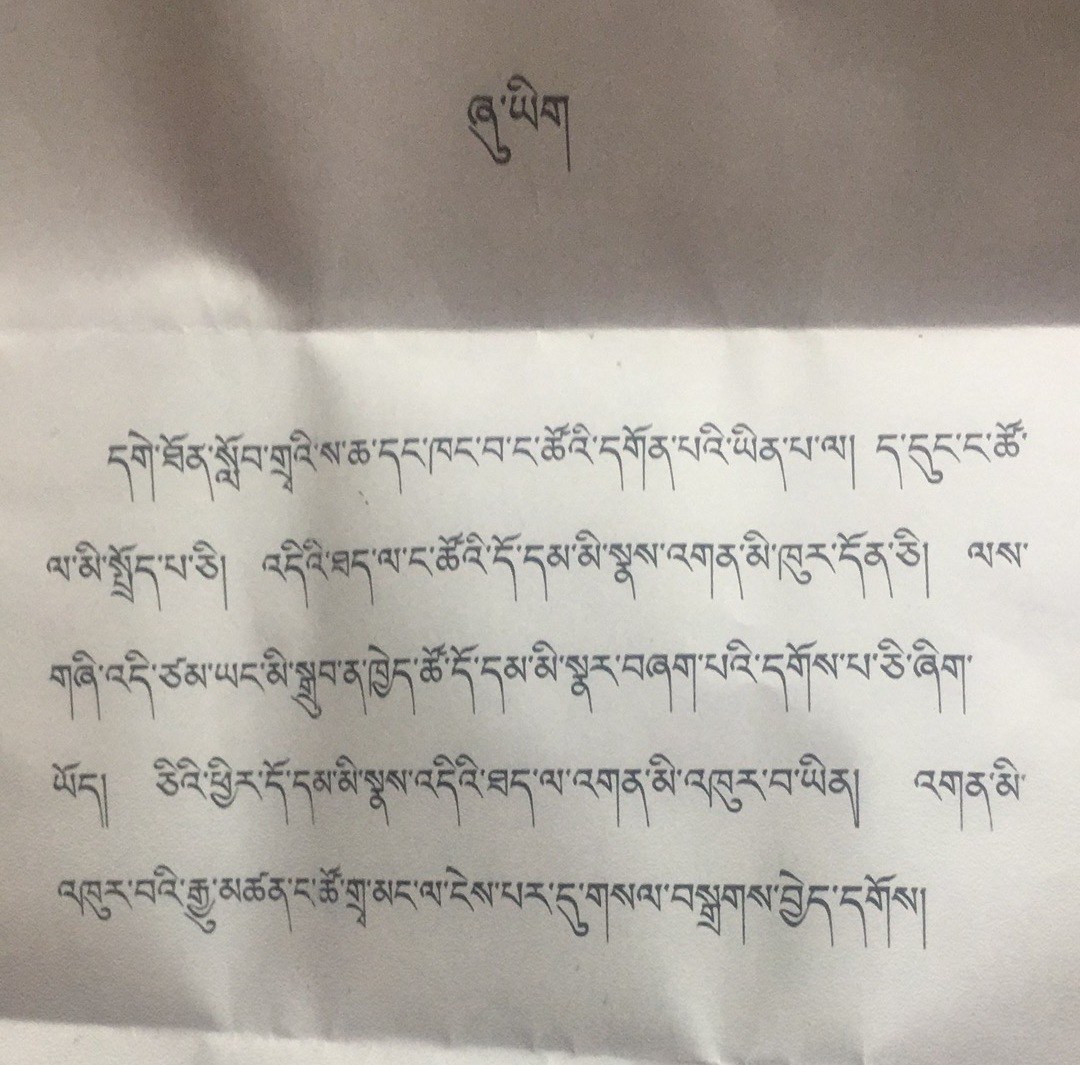 ཞུ་ཡིག
དགེ་ཐོན་སློབ་གྲྭའི་ས་ཆ་དང་ཁང་བ་ང་ཚོའི་དགོན་པའི་ཡིན་པ་ལ། ད་དུང་ང་ཚོ་
ལ་མི་སྤྲོད་པ་ཅི། འདིའི་ཐད་ལ་ང་ཚོའི་དོ་དམ་མི་སྣས་འགན་མི་ཁུར་དོན་ཅི། ལས་
གཞི་འདི་ཙམ་ཡང་མི་སྒྲུབ་ན་ཁྱེད་ཚོ་དོ་དམ་མི་སྣར་བཞག་པའི་དགོས་པ་ཅི་ཞིག་
ཡོད། ཅིའི་ཕྱིར་དོ་དམ་མི་སྣས་འདིའི་ཐད་ལ་འགན་མི་འཁུར་བ་ཡིན། འགན་མི་
འཁུར་བའི་རྒྱུ་མཚན་ང་ཚོ་གྲྭ་མང་ལ་ངེས་པར་དུ་གསལ་བསྒྲགས་བྱེད་དགོས།